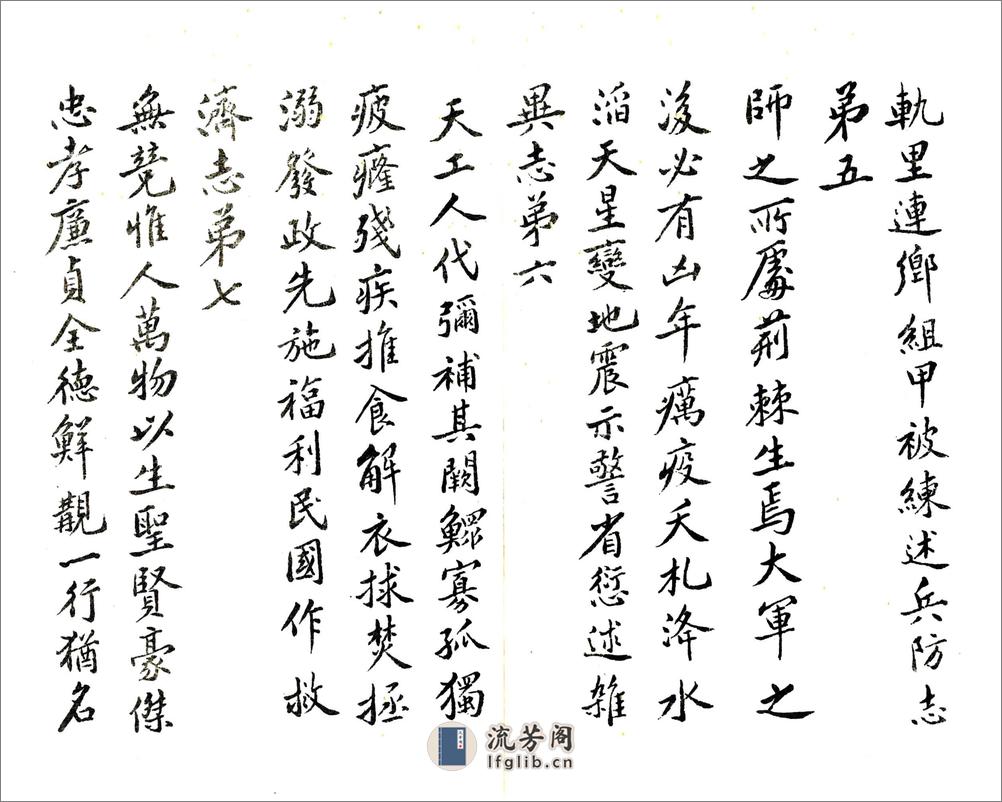 軌里連鄉組甲被練述兵防志
弟五
師之所處荊棘生焉大軍之
後必有凶年癘疫夭札洚水
滔天星變地震示警省愆述雜
異志弟六
天工人代彌補其闕鰥寡孤獨
疲癃殘疾推食解衣捄焚拯
溺發政先施福利民國作救
濟志弟七
無競惟人萬物以生聖賢豪傑
忠孝廉貞全德鮮觀一行猶名
流芳阁
lfglib.cn